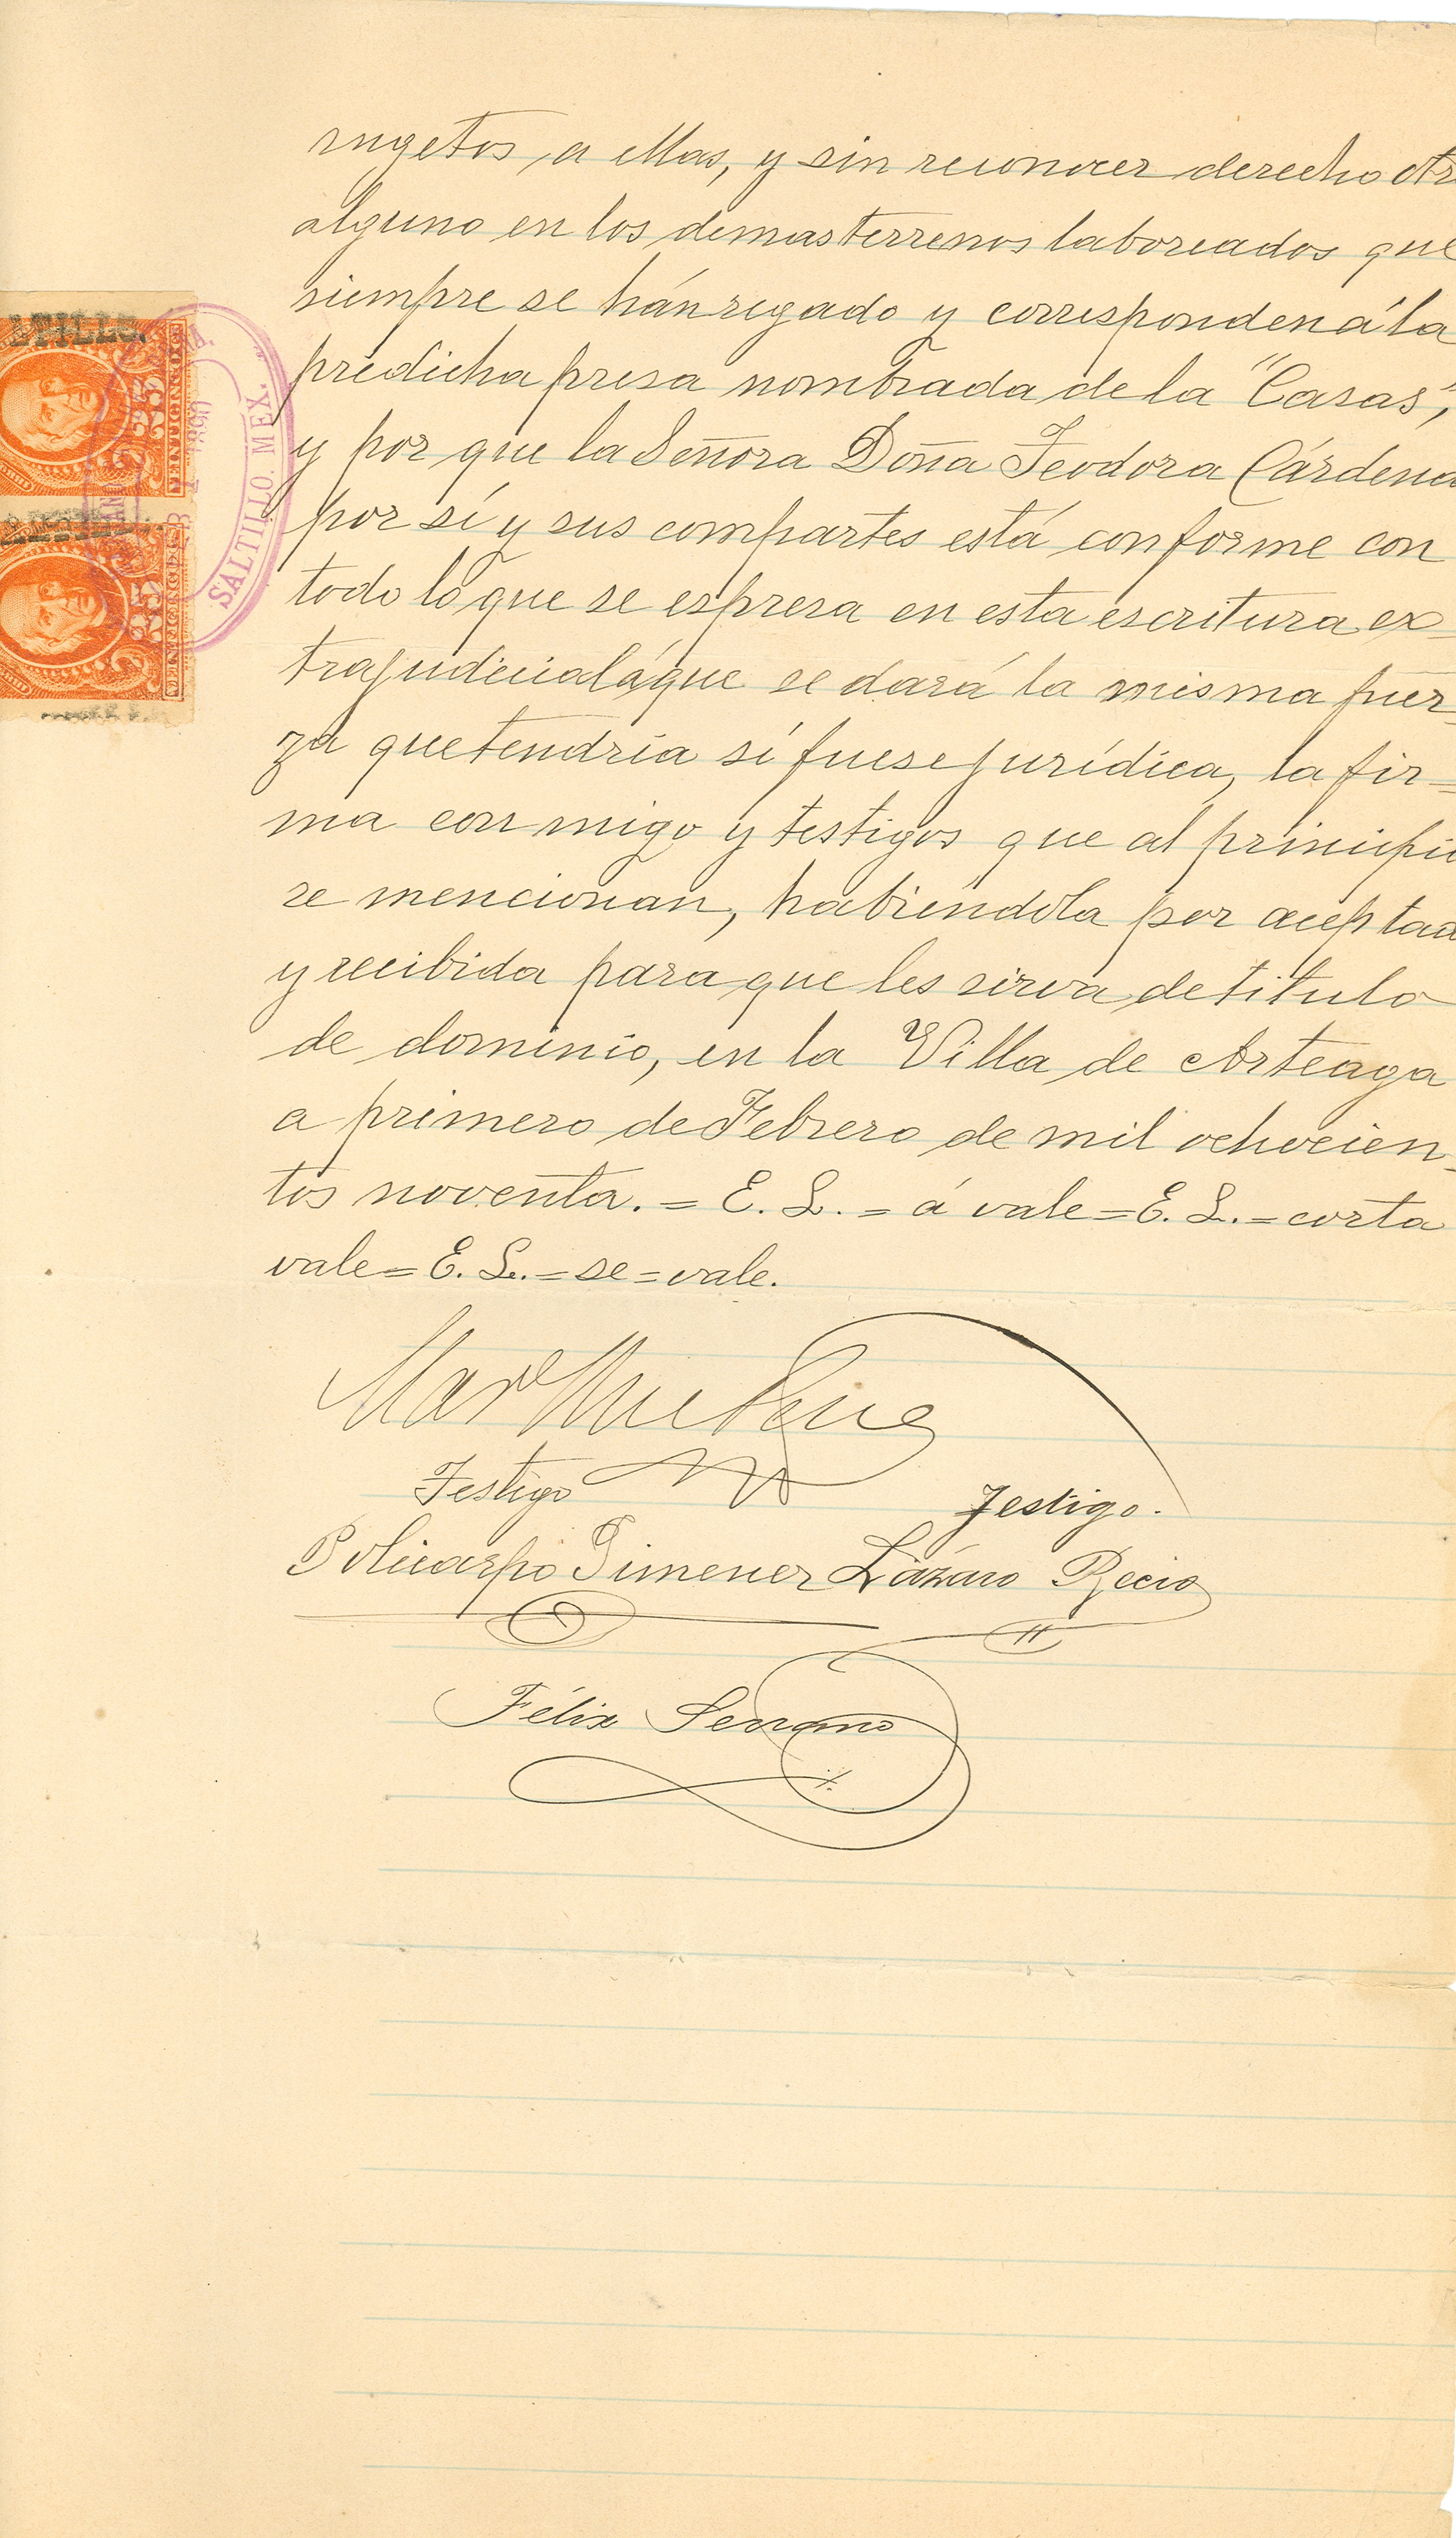 sugetos a ellas, y sin reconocer derecho otr
alguno en los demas terrenos laboreados que
siempre se hán regado y corresponden á la
predicha presa nombrada de la "Casas",
y por que la Señora Doña Teodora Cárdena
por sí y sus compartes está conforme con
todo lo que se espresa en esta escritura ex-
trajudicial á que se dará la misma fuer-
za que tendría sí fuese jurídica, la fir=
ma con migo y testigos que al principio
se mencionan, habiéndola por aceptad
y recibida para que les sirva de titulo
de dominio, en la Villa de Arteaga
a primero de Febrero de mil ochocien-
tos noventa. = E. L. = á vale = E. L. = corta
vale = E. L. = se = vale.
Testigo
Testigo.
Policarpo Jimenez
Lázaro Recio
Félix Serrano
SALTILLO. MEX.
VEINTICINCO CS
25
VEINTICINCO CS
25